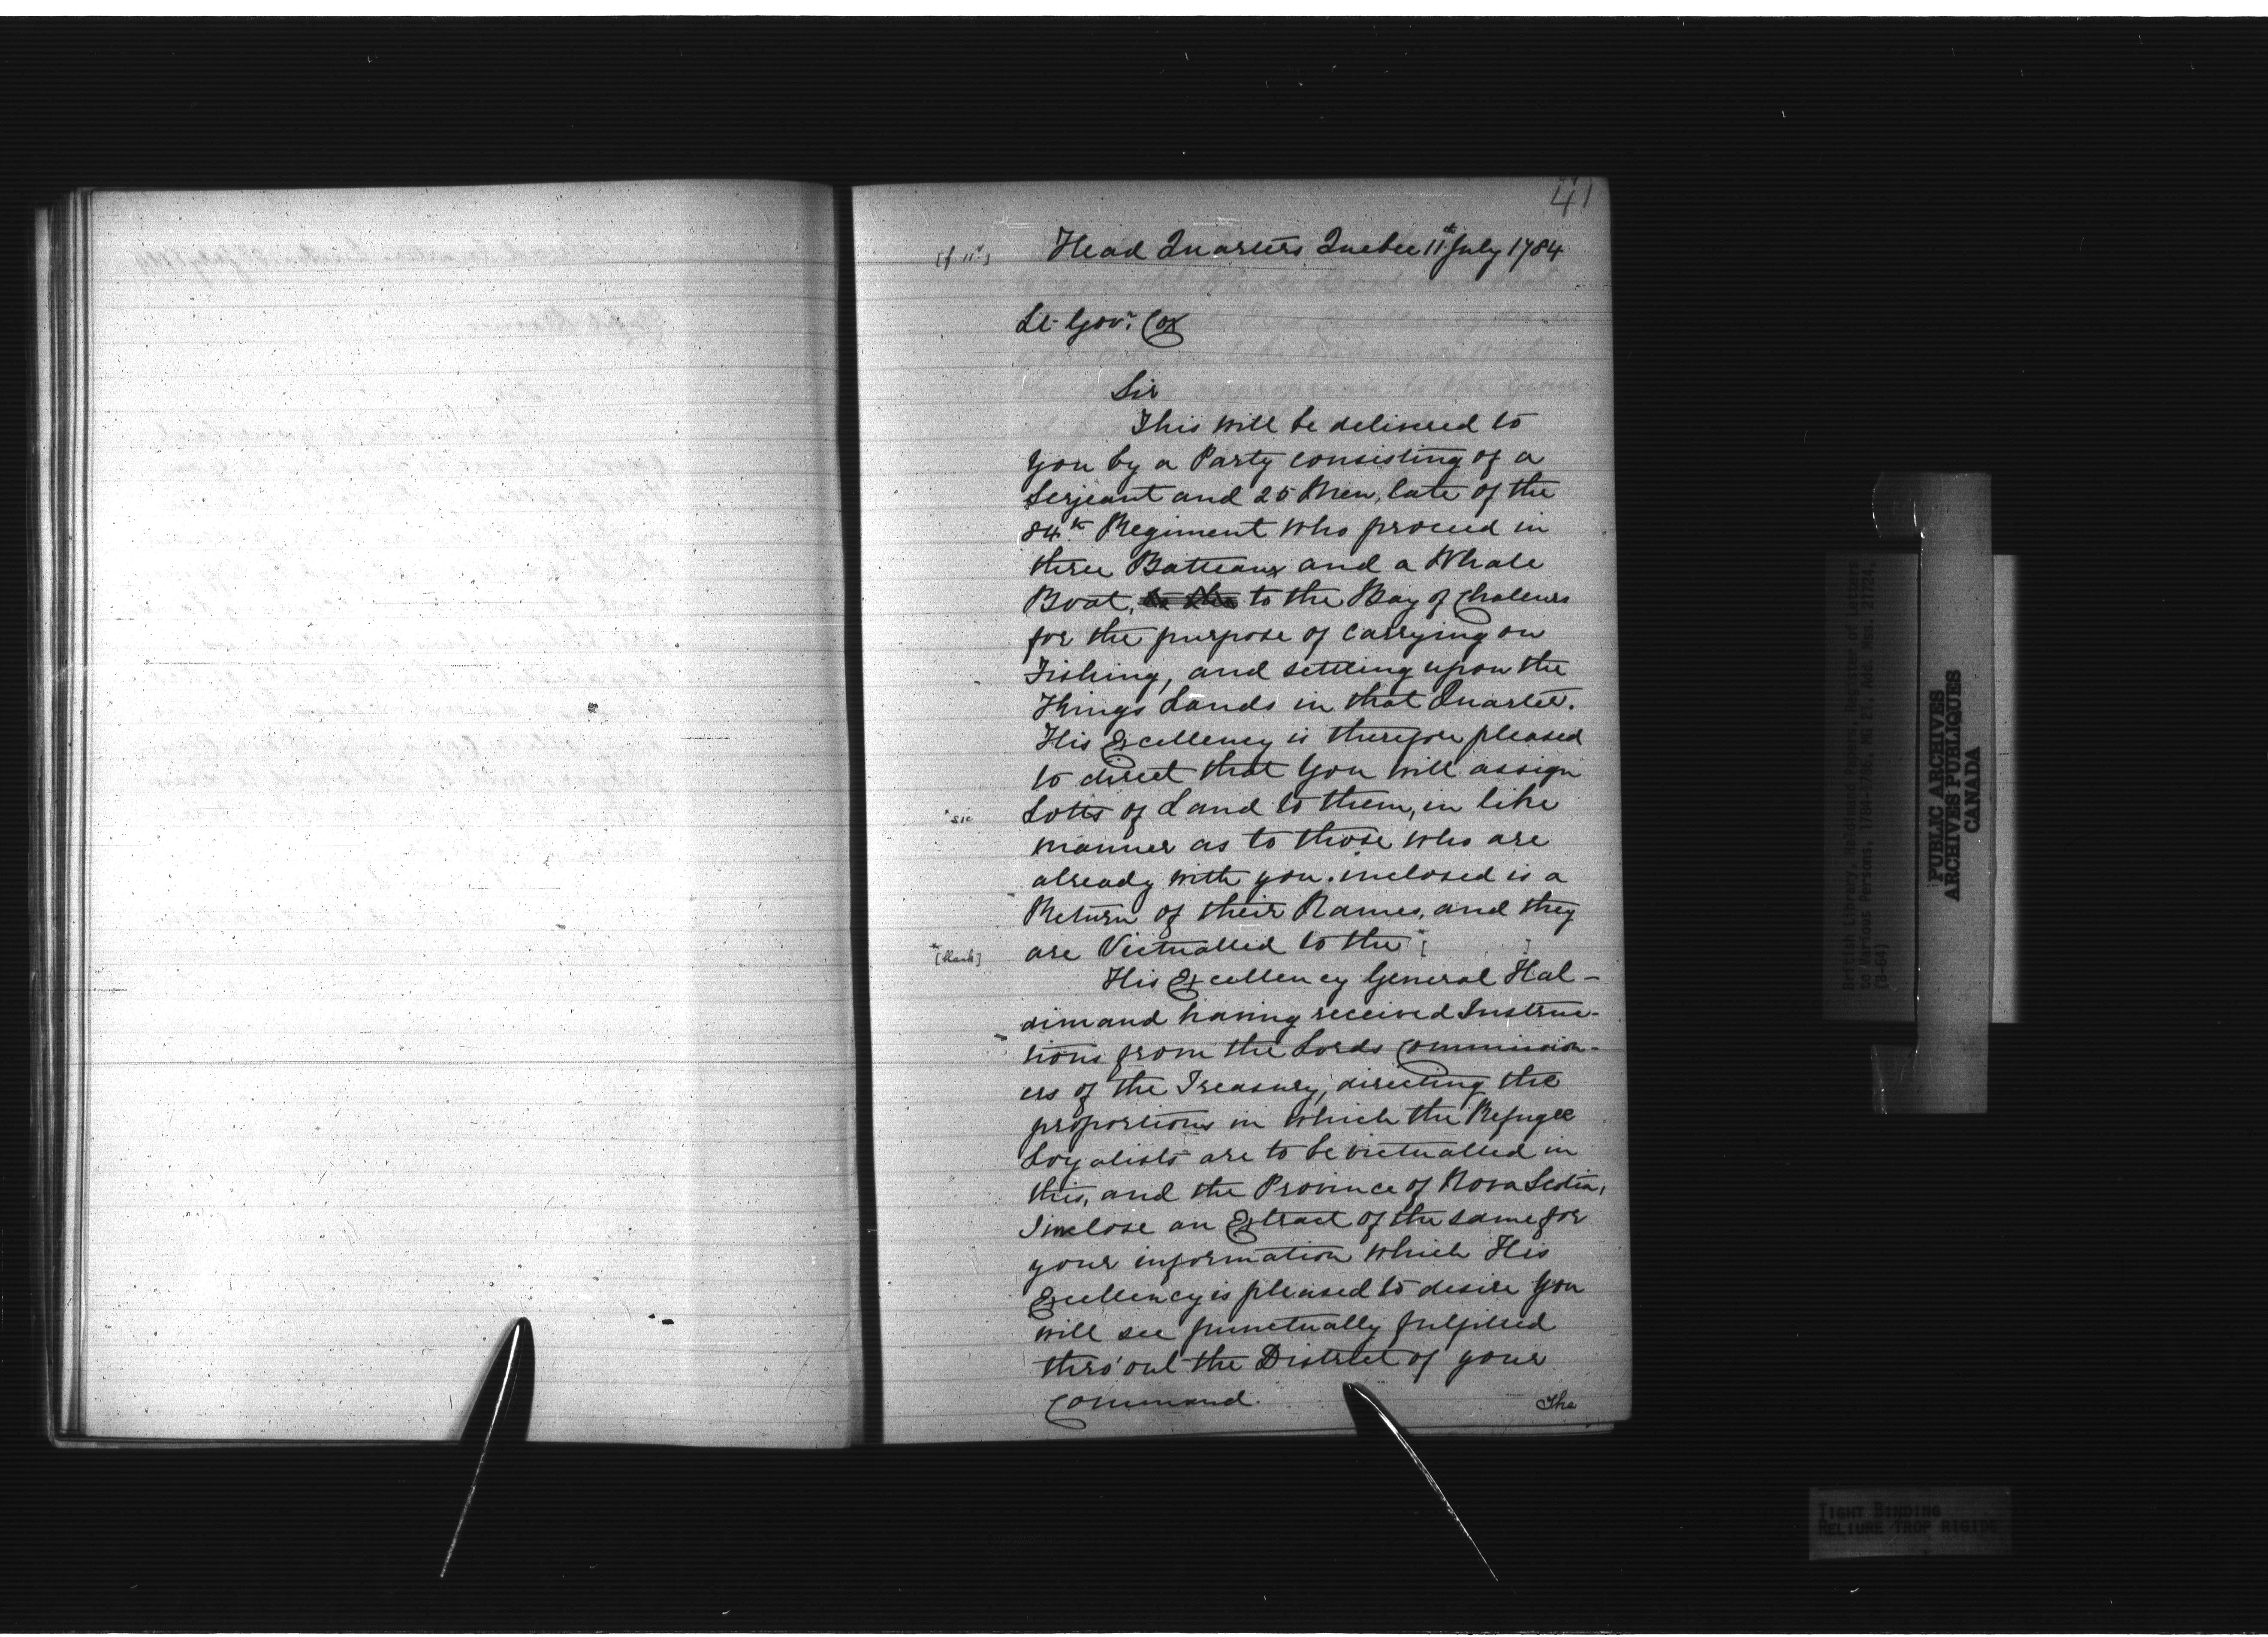 41
Head Quarters Quebec 11th July 1784
Lt Govr. Cox
Sir
This will be delivered to
you by a Party consisting of a
Serjeant and 25 Men, late of the
84th Regiment who proceed in
three Batteaux and a Whale
Boat, to the Bay of Chaleurs
for the purpose of carrying on
Fishing, and settling upon the
Kings Lands in that Quarter.
His Excellency is therefore pleased
to direct that you will assign
*sic Lotts of Land to them, in like
manner as to those who are
already with you. inclosed is a
Return of their Names, and they
*[blank] are Victualled to the *[ ]
His Excellency General Hal-
dimand having received Instruc-
tions from the Lords Commission-
ers of the Treasury, directing the
proportions in which the Refugee
Loyalists are to be victualled in
this, and the Province of Nova Scotia,
I inclose an Extract of the same for
your information which His
Excellency is pleased to desire you
will see punctually fulfilled
thro'out the District of your
Command.
The
British Library, Haldimand Papers, Register of Letters
to Various Persons, 1784-1786. MG 21. Add. Mss. 21724,
(B-64)
PUBLIC ARCHIVES
ARCHIVES PUBLIQUES
CANADA
TIGHT BINDING
RELIURE TROP RIGIDE